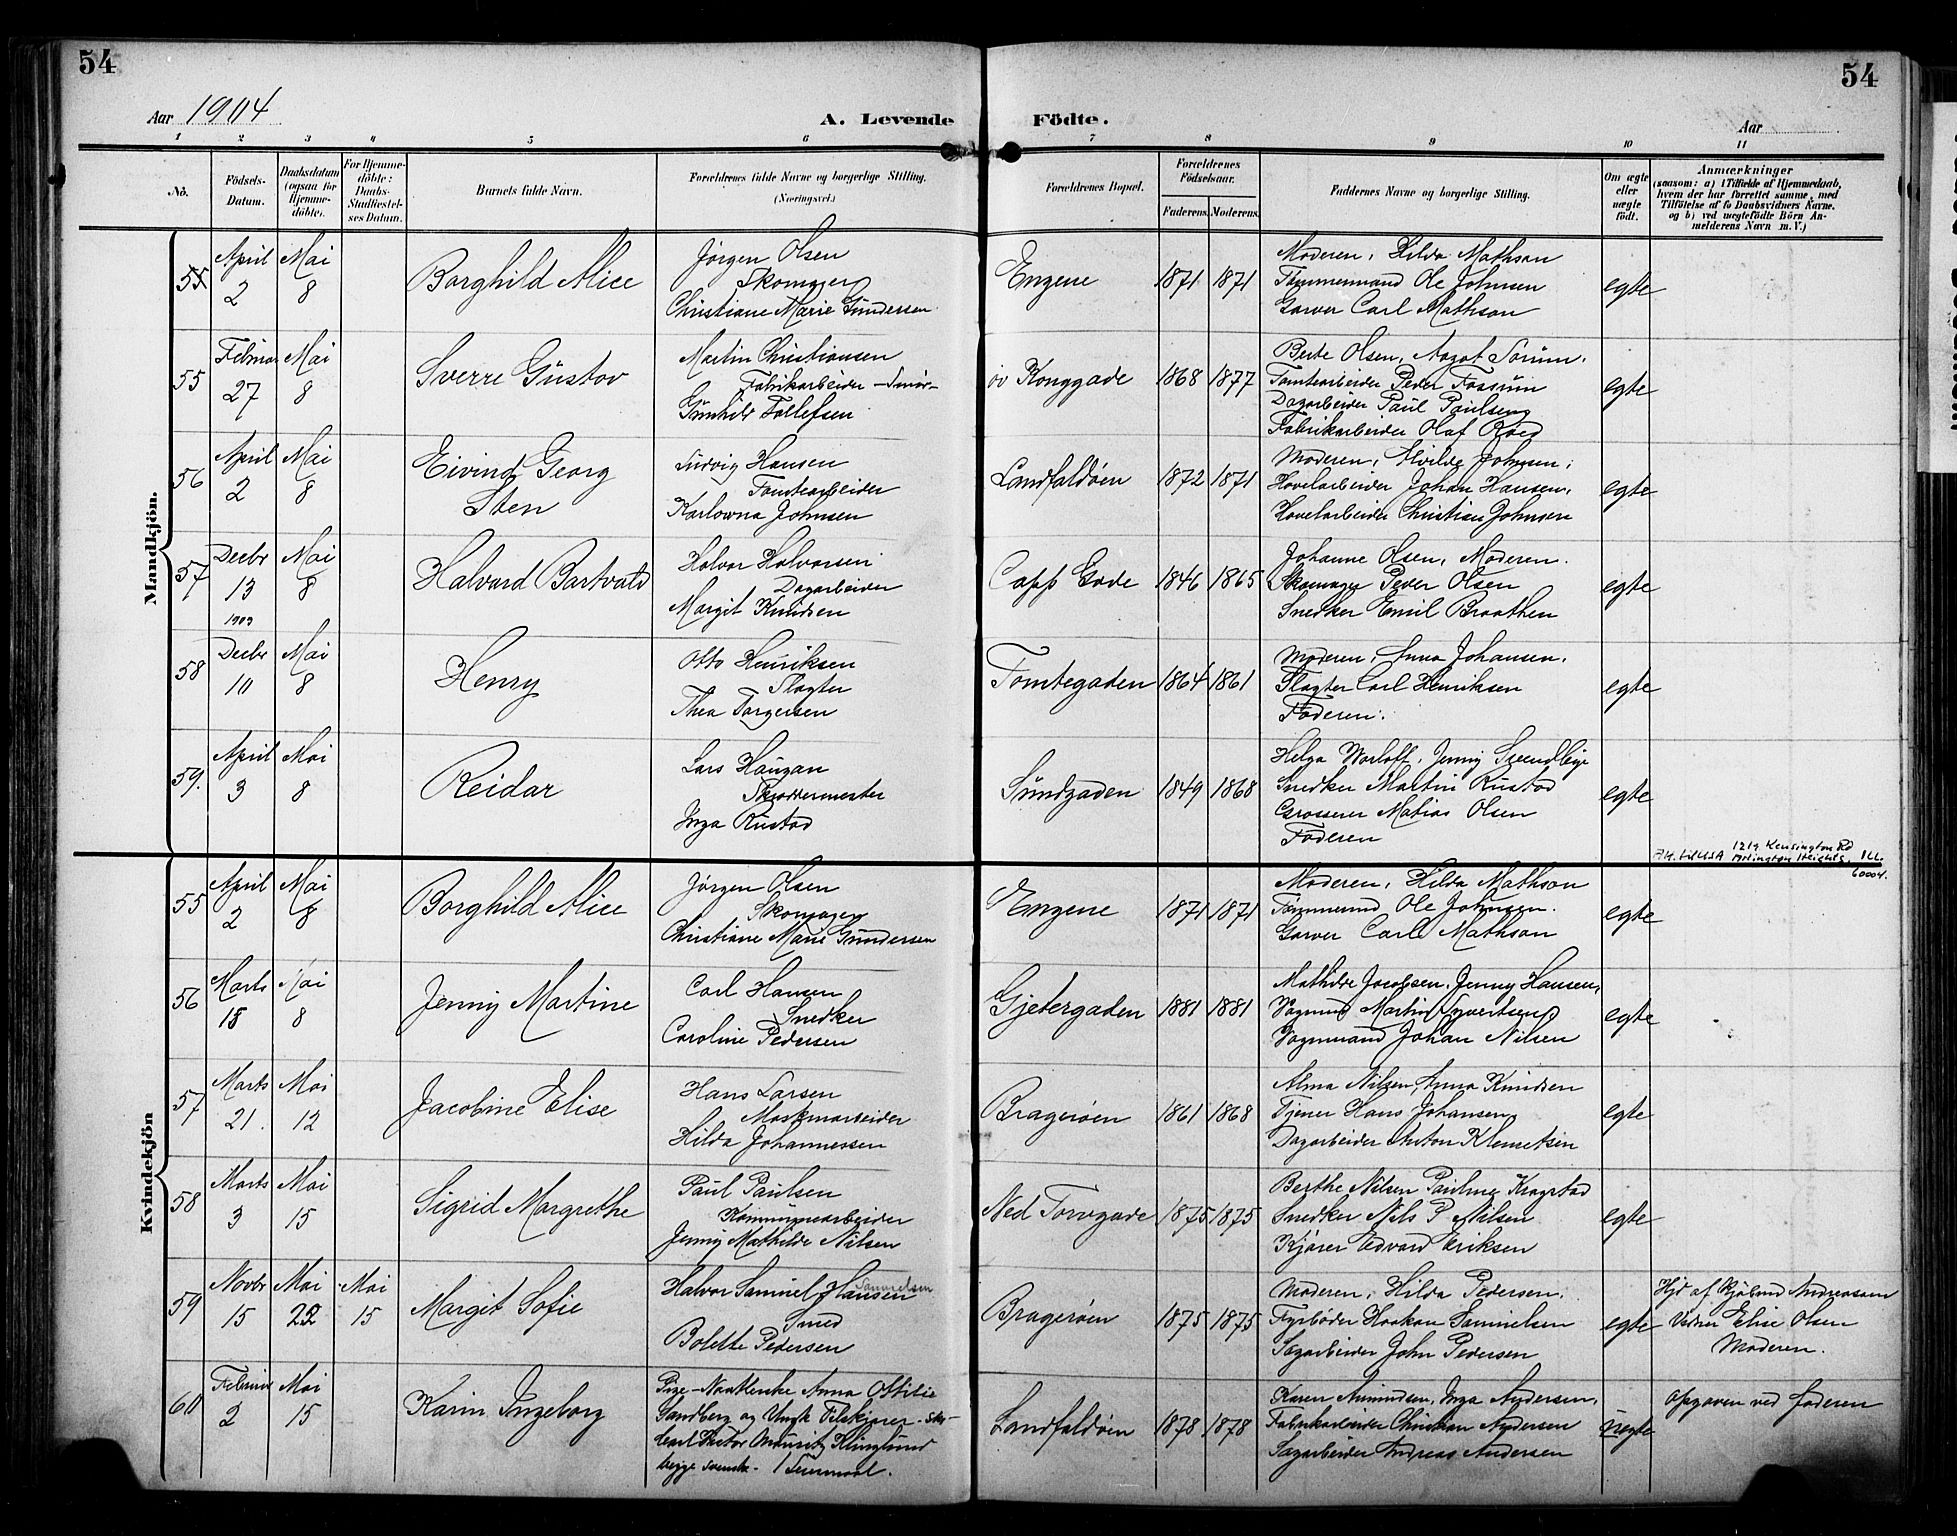 54
54
Aar 1904
A. Levende Födte.
Aar
1 2 3 4 5 6 7 8 9 10 11
No.
Födsels-Datum.
Daabsdatum (ogsaa for Hjemme-döbte).
For Hjemme-döbte: Daabs-Stadfæstel-ses Datum.
Barnets fulde Navn.
Forældrenes fulde Navne og borgerlige Stilling. (Næringsvei.)
Forældrenes Bopæl.
Forældrenes Födselsaar.
Faderens. Moderens.
Faddernes Navne og borgerlige Stilling.
Om ægte eller uægte födt.
Anmærkninger
(saasom: a) i Tilfælde af Hjemmedaab,
hvem der har forrettet samme, med
Tilföielse af to Daabsvidners Navne,
og b) ved uægtefödte Börn An-
melderens Navn m. V.)
Mandkjön.
55 April 2 Mai 8
Borghild Alice
Jørgen Olsen
Skomager
Christiane Marie Gundersen
Engene 1871 1871
Moderen, Hilda Mathson
Tømmermand Ole Johnsen
Garver Carl Mathson
egte
55 Februar 27 Mai 8
Sverre Gustav
Martin Christiansen
Fabrikarbeider - Smør-
Gunhild Tollefsen
øv Konggade 1868 1877
Berte Olsen, Aagot Sørum.
Tomtearbeider Peder Fossum
Dagarbeider Paul Paulsen
Fabrikarbeider Olaf Roed
egte
56 April 2 Mai 8
Eivind Georg
Sten
Ludvig Hansen
Tomtearbeider
Karlowna Johnsen
Landfaldøen 1872 1871
Moderen, Hvilda Johnsen;
Høvelarbeider Johan Hansen,
Høvelarbeider Christian Johnsen
egte
57 Decbr 13 1903 Mai 8
Halvard Bartvald
Halvor Halvorsen
Dagarbeider
Margit Knudsen
Capp. Gade 1846 1865
Johanne Olsen, Moderen.
Skomager Peder Olsen
Snedker Emil Braathen
egte
58 Decbr 10 Mai 8
Henry
Otto Henriksen
Slagter
Thea Torgersen
Tomtegaden 1864 1861
Moderen, Anna Johansen.
Slagter Carl Henriksen
Faderen.
egte
59. April 3 Mai 8
Reidar
Lars Haugan
Skreddermester
Inga Rustad
Sundgaden 1849 1868
Helga Warloff, Jenny
Snedker Martin Rustad
Grosserer Matias Olsen
Faderen
egte
til USA 1219 Kensington Rd
Arlington Heights, ILL.
60004.
Kvindekjön
55 April 2 Mai 8
Borghild Alice
Jørgen Olsen
Skomager
Christiane Marie Gundersen
Engene 1871 1871
Moderen, Hilda Mathson
Tømmermd Ole Johnsen.
Garver Carl Mathson
egte
56 Marts 15 Mai 8
Jenny Martine
Carl Hansen
Snedker
Caroline Pedersen
Gjetergaden 1881 1881
Mathilde Jacobsen, Jenny Hansen,
Vognmd Martin Syvertsen
Vognmand Johan Nilsen
egte
57 Marts 21. Mai 12
Jacobine Elise
Hans Larsen
Maskinarbeider
Hilda Johannessen
Bragerøen 1861 1868
Alma Nilsen, Anna Knudsen
Tjener Hans Johansen
Dagarbeider Anton Klemetsen
egte
58 Marts 3 Mai 15
Sigrid Margrethe
Paul Paulsen
Kommunearbeider
Jenny Mathilde Nilsen
Ned Torvgade 1875 1875
Berthe Nilsen Pauline Kragstad
Snedker Nils P Nilsen
Kjører Edvard Eriksen
egte
59 Novbr 15 Mai 22 Mai 15
Margit Sofie
Halvor Samuel Hansen Samuelsen
Smed
Bolette Pedersen
Bragerøen 1875 1875
Moderen, Hilda Pedersen.
Fyrbøder Haakon Samuelsen
Sagarbeider John Pedersen
egte
Hjd af Andreasen
Vidner Elise Olsen
Moderen.
60 Februar 2 Mai 15
Karin Ingeborg
Pige - Anna Ottilie
Sandberg og Ungk
Carl Victor Mauritz Klinglund
begge svenske. 1 Leiermaal.
Landfaldøen 1878 1878
Karen Amundsen, Inga Andersen,
Fabrikarbeider Christian Andersen
Sagarbeider Andreas Andersen
uegte
Opgaven ved faderen